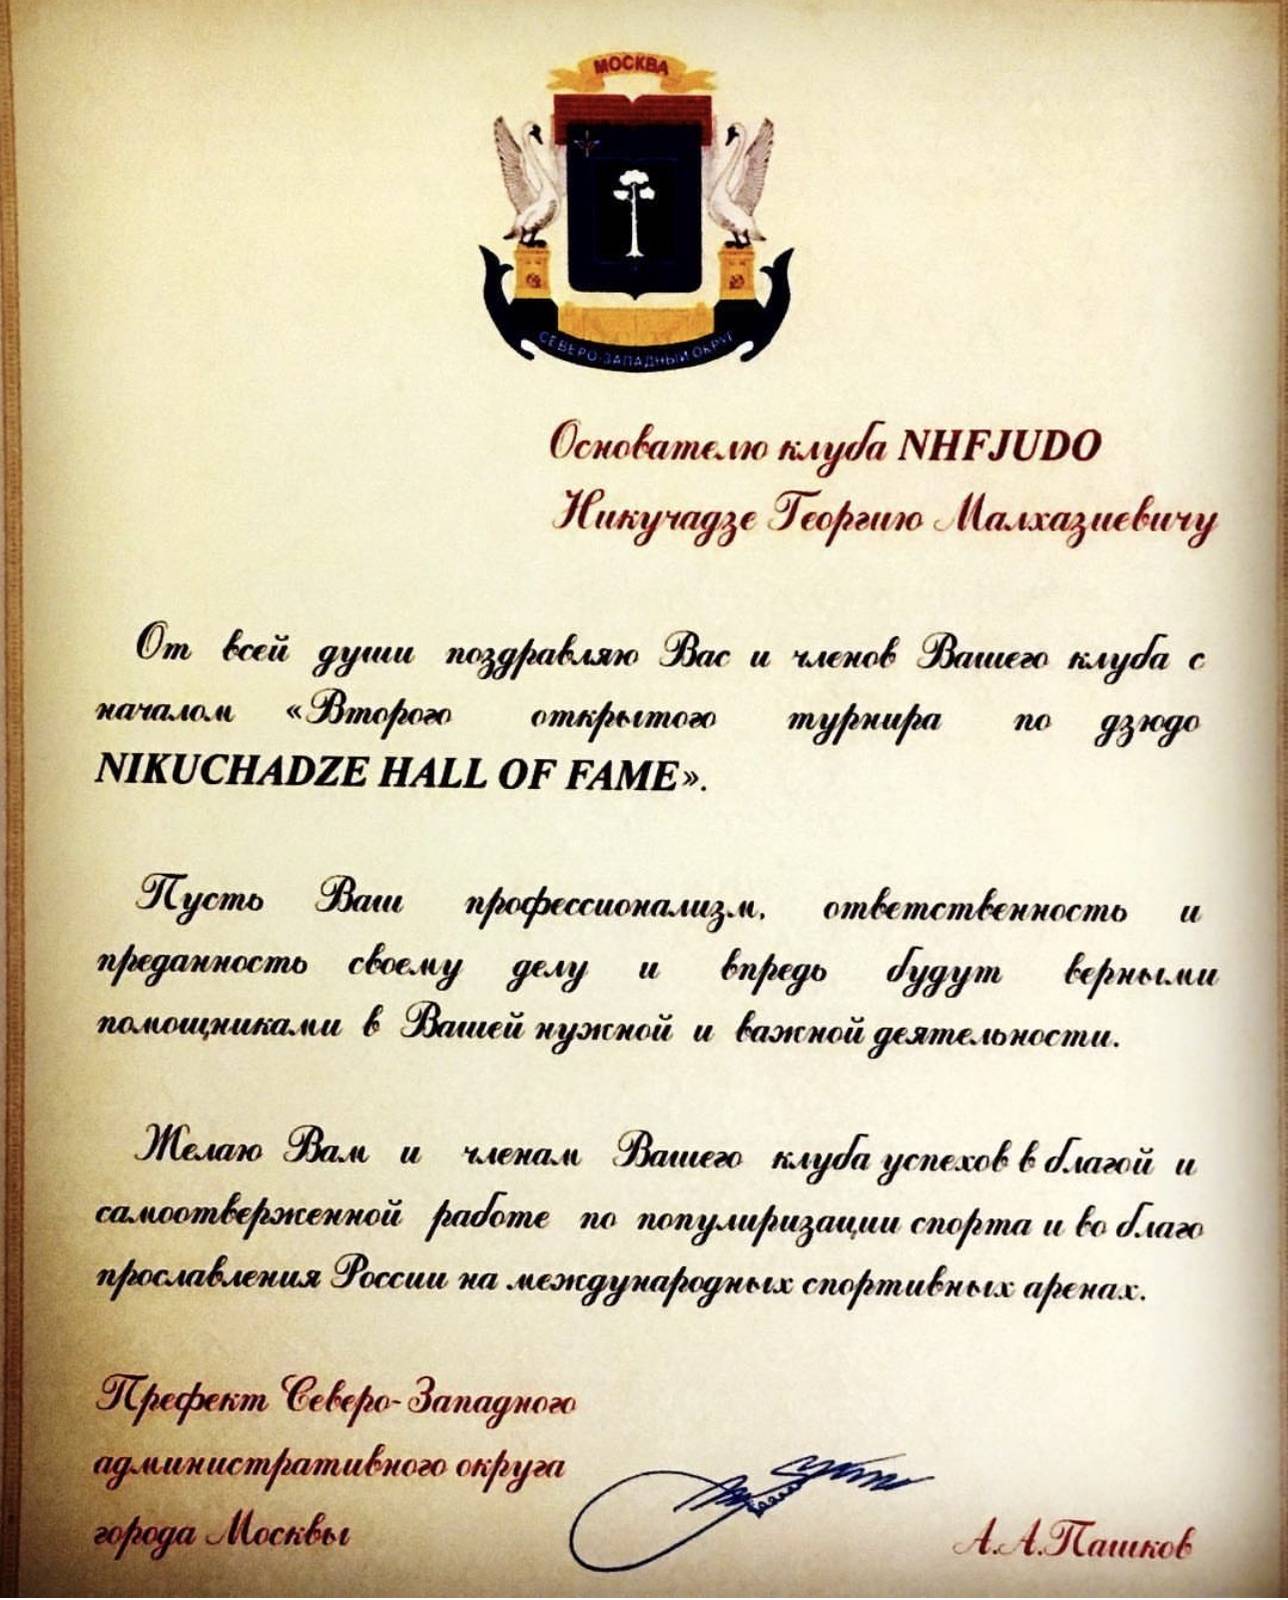 МОСКВА
СЕВЕРО-ЗАПАДНЫЙ ОКРУГ
Основателю клуба NHFJUDO
Никучадзе Георгию Малхазиевичу
От всей души поздравляю Вас и членов Вашего клуба с
началом «Второго открытого турнира по дзюдо
NIKUCHADZE HALL OF FAME».
Пусть Ваш профессионализм, ответственность и
преданность своему делу и впредь будут верными
помощниками в Вашей нужной и важной деятельности.
Желаю Вам и членам Вашего клуба успехов в благой и
самоотверженной работе по популиризации спорта и во благо
прославления России на международных спортивных аренах.
Префект Северо-Западного
административного округа
города Москвы
А.А.Пашков